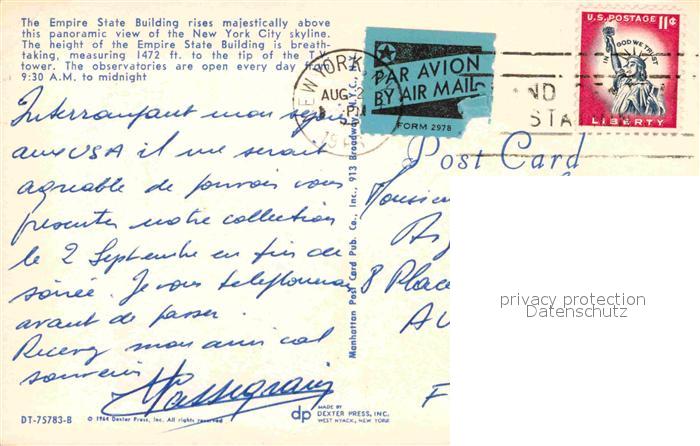 The Empire State Building rises majestically above
this panoramic view of the New York City skyline.
The height of the Empire State Building is breath-
taking, measuring 1472 ft. to the tip of the T.V.
tower. The observatories are open every day from
9:30 A.M. to midnight
NEW YORK
AUG 2
PM
PAR AVION
BY AIR MAIL
FORM 2978
U.S. POSTAGE 11¢
IN GOD WE TRUST
LIBERTY
ND
STA
Post Card
Interrompant mon séjour
aux USA il me serait
agréable de pouvoir vous
présenter notre collection
le 2 Septembre en fin de
soirée. Je vous telephonerai
avant de passer.
Recevez mon amical
souvenir
Monsieur
8 Place
AU
F
Manhattan Post Card Pub. Co., Inc., 913 Broadway, N.Y.C.
privacy protection
Datenschutz
DT-75783-B
© 1964 Dexter Press, Inc. All rights reserved
dp
MADE BY
DEXTER PRESS, INC.
WEST NYACK, NEW YORK